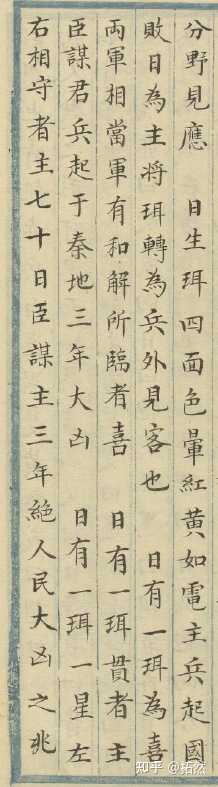 分野見應　日生珥四面色暈紅黄如電主兵起國
敗日為主將珥轉為兵外見客也　日有一珥為喜
兩軍相當軍有和解所臨者喜　日有一珥貫者主
臣謀君兵起于秦地三年大凶　日有一珥一星左
右相守者主七十日臣謀主三年絕人民大凶之兆
知乎 @拓然